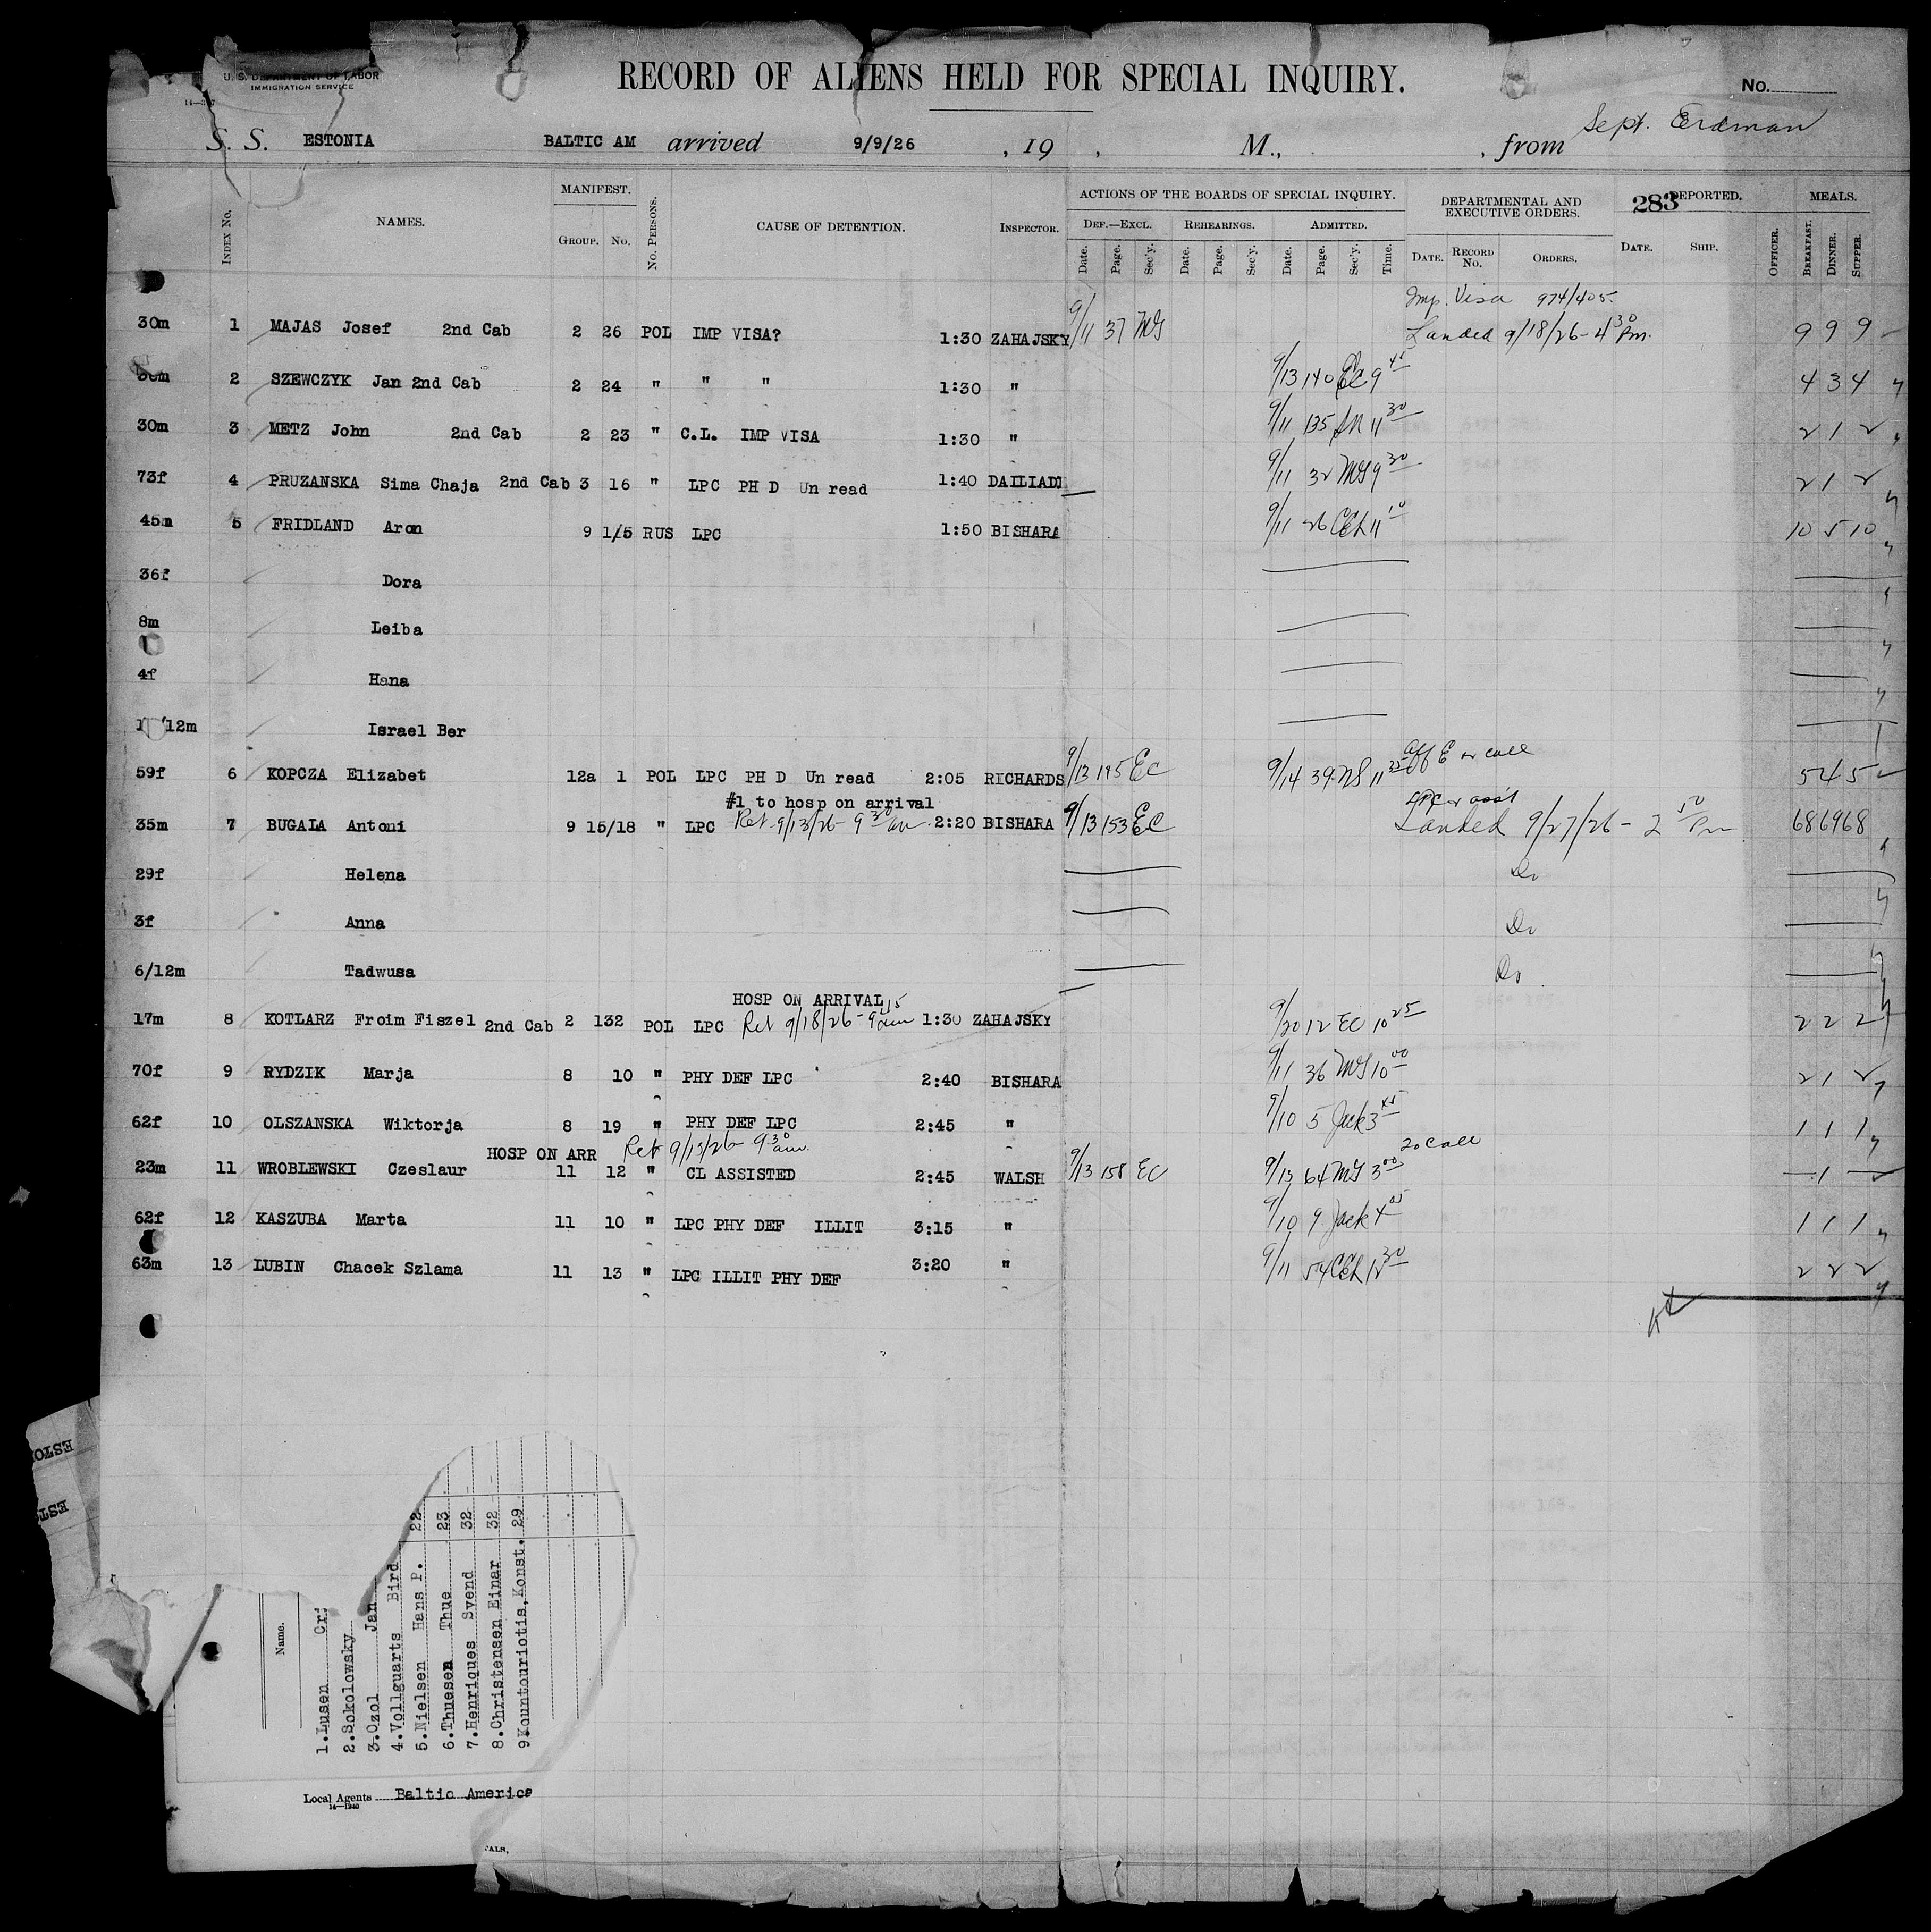 U. S. DEPARTMENT OF LABOR
IMMIGRATION SERVICE
RECORD OF ALIENS HELD FOR SPECIAL INQUIRY.
No.
S. S. ESTONIA BALTIC AM arrived 9/9/26 , 19 , M., , from Sept. Erdman
INDEX No. NAMES. MANIFEST. GROUP. NO. No. PERSONS. CAUSE OF DETENTION. INSPECTOR. ACTIONS OF THE BOARDS OF SPECIAL INQUIRY. DEF.—EXCL. Date. Page. Sec'y. REHEARINGS. Date. Page. Sec'y. ADMITTED. Date. Page. Sec'y. Time. DEPARTMENTAL AND EXECUTIVE ORDERS. DATE. RECORD No. ORDERS. 283 DEPORTED. DATE. SHIP. OFFICER. MEALS. BREAKFAST. DINNER. SUPPER.
Imp. Visa 974/405
30m 1 MAJAS Josef 2nd Cab 2 26 POL IMP VISA? 1:30 ZAHAJSKY 9/11 37 MG Landed 9/18/26 - 4 30 Pm. 9 9 9
30m 2 SZEWCZYK Jan 2nd Cab 2 24 " " " 1:30 " 9/13 140 EC 9 45 4 3 4
30m 3 METZ John 2nd Cab 2 23 " C.L. IMP VISA 1:30 " 9/11 135 11 30 2 1 2
73f 4 PRUZANSKA Sima Chaja 2nd Cab 3 16 " LPC PH D Un read 1:40 DAILIADI 9/11 32 MG 9 30 2 1 2
45m 5 FRIDLAND Aron 9 1/5 RUS LPC 1:50 BISHARA 9/11 26 CEL 11 10 10 5 10
36f Dora
8m Leiba
4f Hana
/12m Israel Ber
59f 6 KOPCZA Elizabet 12a 1 POL LPC PH D Un read 2:05 RICHARDS 9/13 195 EC 9/14 39 NS 11 35 call 5 4 5
#1 to hosp on arrival
35m 7 BUGALA Antoni 9 15/18 " LPC Ret 9/13/26 - 9 30 am 2:20 BISHARA 9/13 153 EC Landed 9/27/26 - 2 50 Pm 68 69 68
29f Helena Do
3f Anna Do
6/12m Tadwusa Do
HOSP ON ARRIVAL
17m 8 KOTLARZ Froim Fiszel 2nd Cab 2 132 POL LPC Ret 9/18/26 - 9 15 am 1:30 ZAHAJSKY 9/20 12 EC 10 25 2 2 2
70f 9 RYDZIK Marja 8 10 " PHY DEF LPC 2:40 BISHARA 9/11 36 MG 10 00 2 1 2
62f 10 OLSZANSKA Wiktorja 8 19 " PHY DEF LPC 2:45 " 9/10 5 Jack 3 45 1 1 1
HOSP ON ARR Ret 9/13/26 9 30 am. 20 call
23m 11 WROBLEWSKI Czeslaur 11 12 " CL ASSISTED 2:45 WALSH 9/13 158 EC 9/13 64 MG 3 00 — 1 —
62f 12 KASZUBA Marta 11 10 " LPC PHY DEF ILLIT 3:15 " 9/10 9 Jack 4 05 1 1 1
63m 13 LUBIN Chacek Szlama 11 13 " LPC ILLIT PHY DEF 3:20 " 9/11 54 CEL 12 30 2 2 2
Name.
1.Lusen
2.Sokolowsky
3.Ozol Jan
4.Vollguarts Bird
5.Nielsen Hans P. 22
6.Thuesen Thue 23
7.Henriques Svend 32
8.Christensen Einar 32
9 Kountouriotis, Konst. 29
Local Agents Baltic America
14—1240